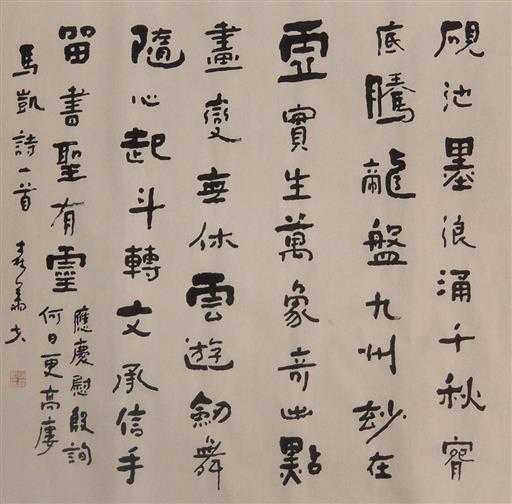 硯池墨浪涌千秋
底騰龍盤九州玅在
虛實生萬象奇點
畫變無休雲遊劒舞
隨心起斗轉文承信手
留書聖有靈
應慶慰殷詢
何日更高廔
馬凱詩一首